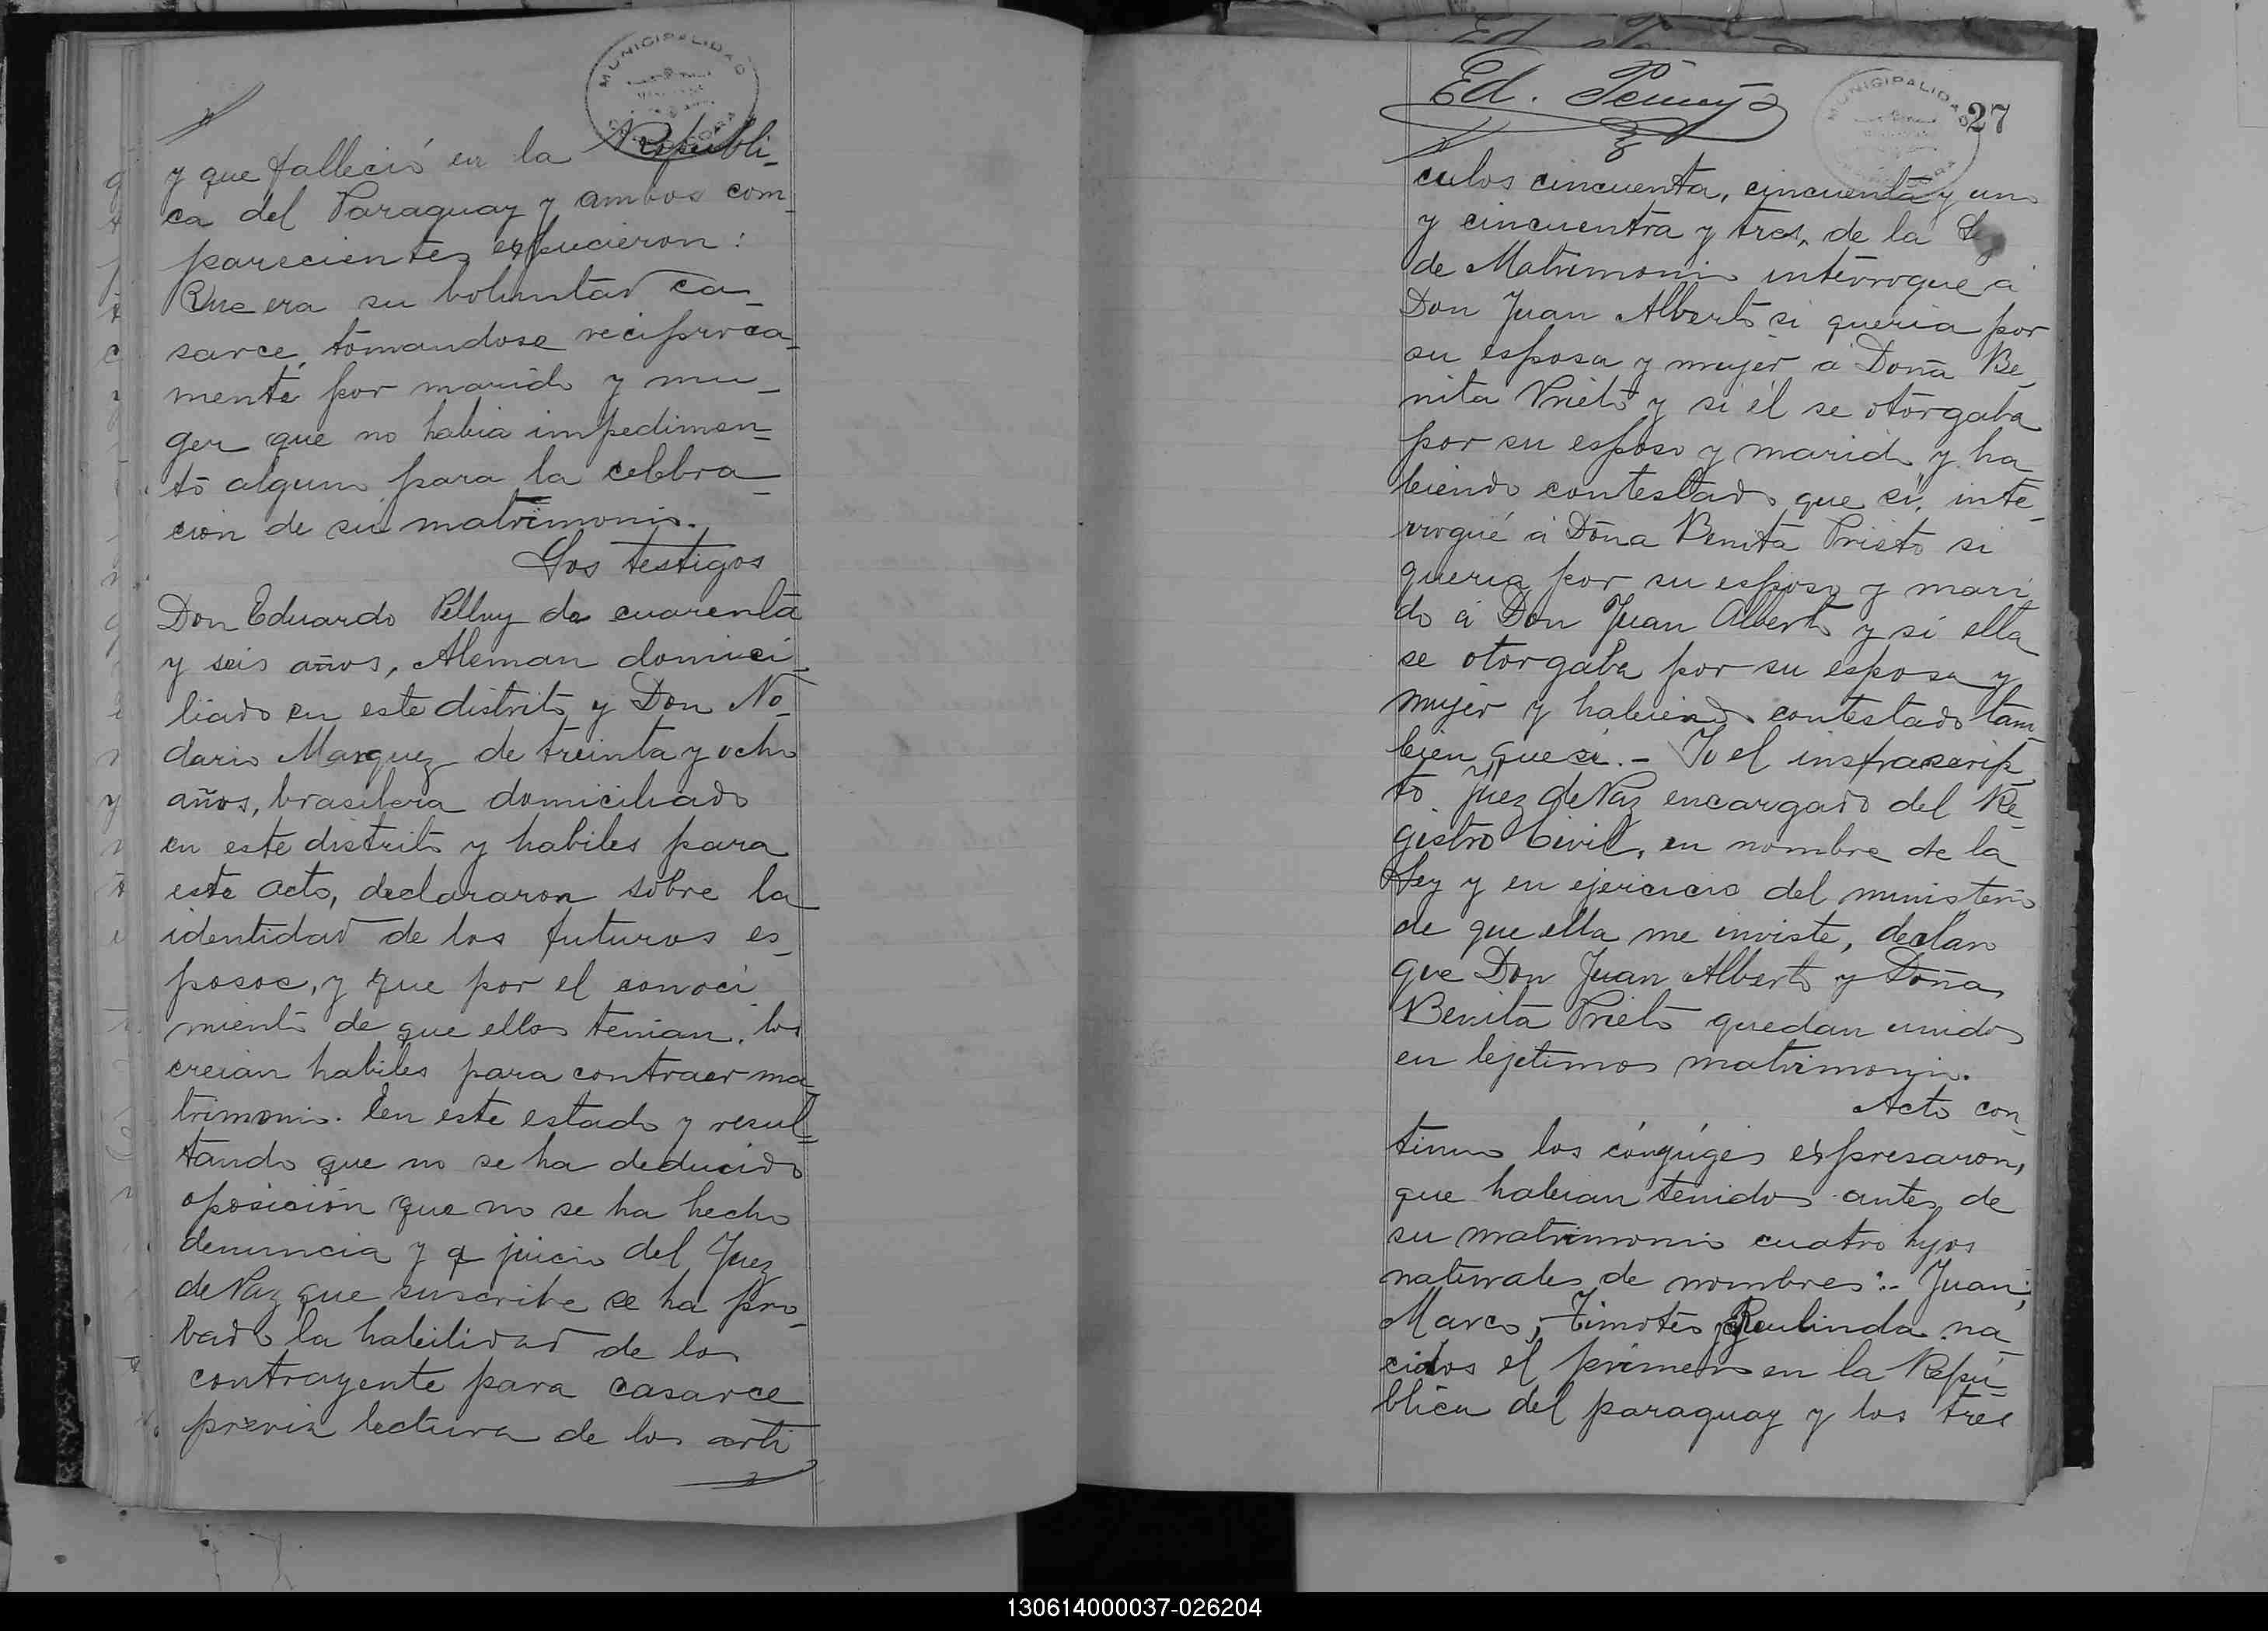 MUNICIPALIDAD
y que falleció en la Republi-
ca del Paraguay y ambos com-
parecientes expucieron:
Que era su boluntad ca-
sarce, tomandose reciproca-
mente por marido y mu-
ger que no habia impedimen-
to alguno para la celebra-
cion de su matrimonio.
Los testigos
Don Eduardo Pelluy de cuarenta
y seis años, Aleman domici-
liado en este distrito y Don No-
dario Marquez de treinta y ocho
años, brasilera domiciliado
en este distrito y habiles para
este acto, declararon sobre la
identidad de los futuros es-
posos, y que por el conoci
miento de que ellos tenian, los
creian habiles para contraer ma-
trimonio. En este estado y resul-
tando que no se ha deducido
oposición que no se ha hecho
denuncia y a juicio del Juez
de Paz que suscribe se ha pro-
bado la habilidad de los
contrayente para casarce
previa lectura de los arti
Ed.
MUNICIPALIDAD
27
culos cincuenta, cincuenta y uno
y cincuentra y tres, de la Ley
de Matrimonio interroque á
Don Juan Alberto si queria por
su esposa y mujer a Doña Be-
nita Prieto y si él se otorgaba
por su esposo y marido y ha-
biendo contestado que sí, inte-
rrogué á Doña Benita Prieto si
queria por su esposo y mari
do á Don Juan Alberto y si ella
se otorgaba por su esposa y
mujer y habiendo contestado tam-
bien que si. - Yo el insfrascrip
to Juez de Paz encargado del Re-
gistro Civil, en nombre de la
Ley y en ejercicio del ministerio
de que ella me inviste, declaro
que Don Juan Alberto y Doña
Benita Prieto quedan unidos
en lejetimos matrimonio.
Acto con-
tinuo los cónyúges espresaron,
que habian tenidos antes de
su matrimonio cuatro hijos
naturales de nombres:- Juan;
Marco; Timoteo y Reulinda na-
cidos el primero en la Repú-
blica del paraguay y los tres
130614000037-026204